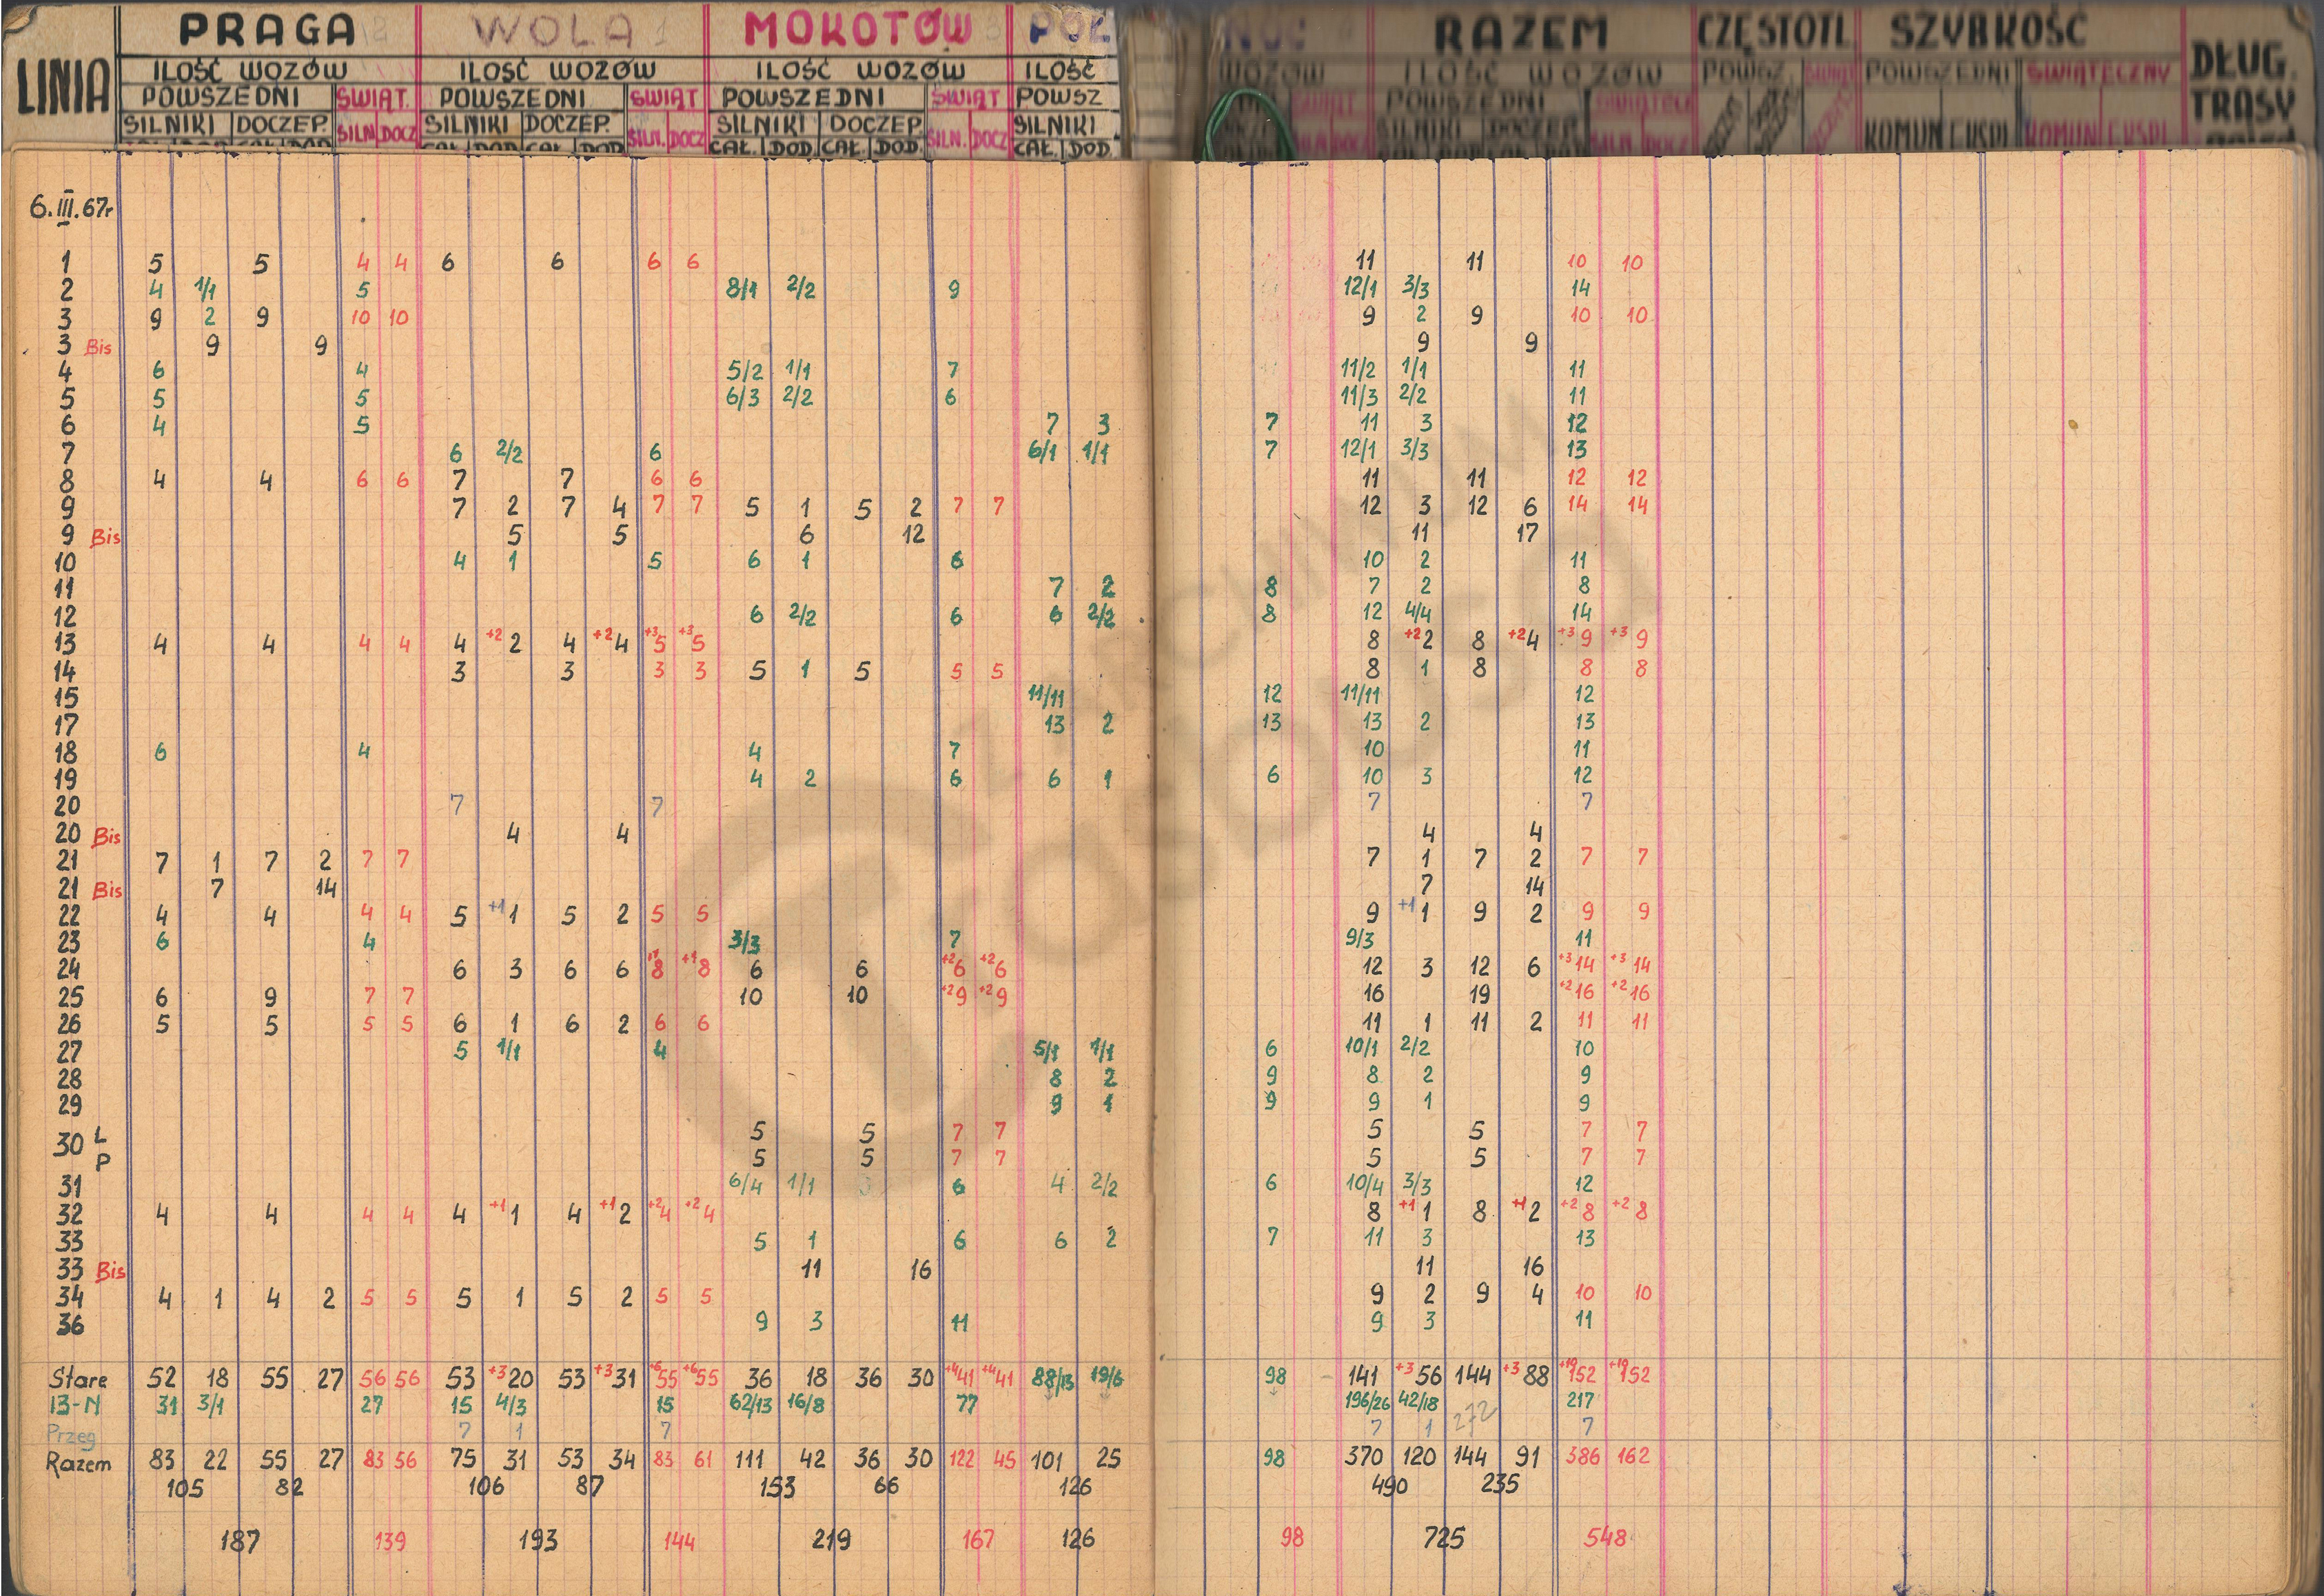 LINIA PRAGA WOLA 1 MOKOTÓW PÓŁ NOC RAZEM CZĘSTOTL. SZYBKOŚĆ DŁUG. TRASY
ILOŚĆ WOZÓW ILOŚĆ WOZÓW ILOŚĆ WOZÓW ILOŚĆ WOZÓW ILOŚĆ WOZÓW POWSZ. ŚWIĄT POWSZEDNI ŚWIĄTECZNY
POWSZEDNI ŚWIĄT. POWSZEDNI ŚWIĄT POWSZEDNI ŚWIĄT POWSZ ŚWIĄT POWSZEDNI ŚWIĄTECZ
SILNIKI DOCZEP. SILN DOCZ SILNIKI DOCZEP. SILN. DOCZ SILNIKI DOCZEP. SILN. DOCZ SILNIKI SILNIKI DOCZEP. SILN DOCZ KOMUN EKSPL KOMUN EKSPL
CAŁ. DOD. CAŁ. DOD. CAŁ. DOD. CAŁ. DOD. CAŁ. DOD.
6.III.67r
1 5 5 4 4 6 6 6 6 11 11 10 10
2 4 1/1 5 8/1 2/2 9 12/1 3/3 14
3 9 2 9 10 10 9 2 9 10 10
3 Bis 9 9 9 9
4 6 4 5/2 1/1 7 11/2 1/1 11
5 5 5 6/3 2/2 6 11/3 2/2 11
6 4 5 7 3 7 11 3 12
7 6 2/2 6 6/1 1/1 7 12/1 3/3 13
8 4 4 6 6 7 7 6 6 11 11 12 12
9 7 2 7 4 7 7 5 1 5 2 7 7 12 3 12 6 14 14
9 Bis 5 5 6 12 11 17
10 4 1 5 6 1 6 10 2 11
11 7 2 8 7 2 8
12 6 2/2 6 6 2/2 8 12 4/4 14
13 4 4 4 4 4 +2 2 4 +2 4 +3 5 +3 5 8 +2 2 8 +2 4 +3 9 +3 9
14 3 3 3 3 5 1 5 5 5 8 1 8 8 8
15 11/11 12 11/11 12
17 13 2 13 13 2 13
18 6 4 4 7 10 11
19 4 2 6 6 1 6 10 3 12
20 7 7 7 7
20 Bis 4 4 4 4
21 7 1 7 2 7 7 7 1 7 2 7 7
21 Bis 7 14 7 14
22 4 4 4 4 5 +1 1 5 2 5 5 9 +1 1 9 2 9 9
23 6 4 3/3 7 9/3 11
24 6 3 6 6 +1 8 +1 8 6 6 +2 6 +2 6 12 3 12 6 +3 14 +3 14
25 6 9 7 7 10 10 +2 9 +2 9 16 19 +2 16 +2 16
26 5 5 5 5 6 1 6 2 6 6 11 1 11 2 11 11
27 5 1/1 4 5/1 1/1 6 10/1 2/2 10
28 8 2 9 8 2 9
29 9 1 9 9 1 9
30 L 5 5 7 7 5 5 7 7
P 5 5 7 7 5 5 7 7
31 6/4 1/1 6 4 2/2 6 10/4 3/3 12
32 4 4 4 4 4 +1 1 4 +1 2 +2 4 +2 4 8 +1 1 8 +1 2 +2 8 +2 8
33 5 1 6 6 2 7 11 3 13
33 Bis 11 16 11 16
34 4 1 4 2 5 5 5 1 5 2 5 5 9 2 9 4 10 10
36 9 3 11 9 3 11
Stare 52 18 55 27 56 56 53 +3 20 53 +3 31 +6 55 +6 55 36 18 36 30 +4 41 +4 41 88/13 19/6 98 141 +3 56 144 +3 88 +10 152 +10 152
13-N 31 3/1 27 15 4/3 15 62/13 16/8 77 196/26 42/18 217
Przeg 7 1 7 7 1 272 7
Razem 83 22 55 27 83 56 75 31 53 34 83 61 111 42 36 30 122 45 101 25 98 370 120 144 91 386 162
105 82 106 87 153 66 126 490 235
187 139 193 144 219 167 126 98 725 548
Z ARCHIWUM